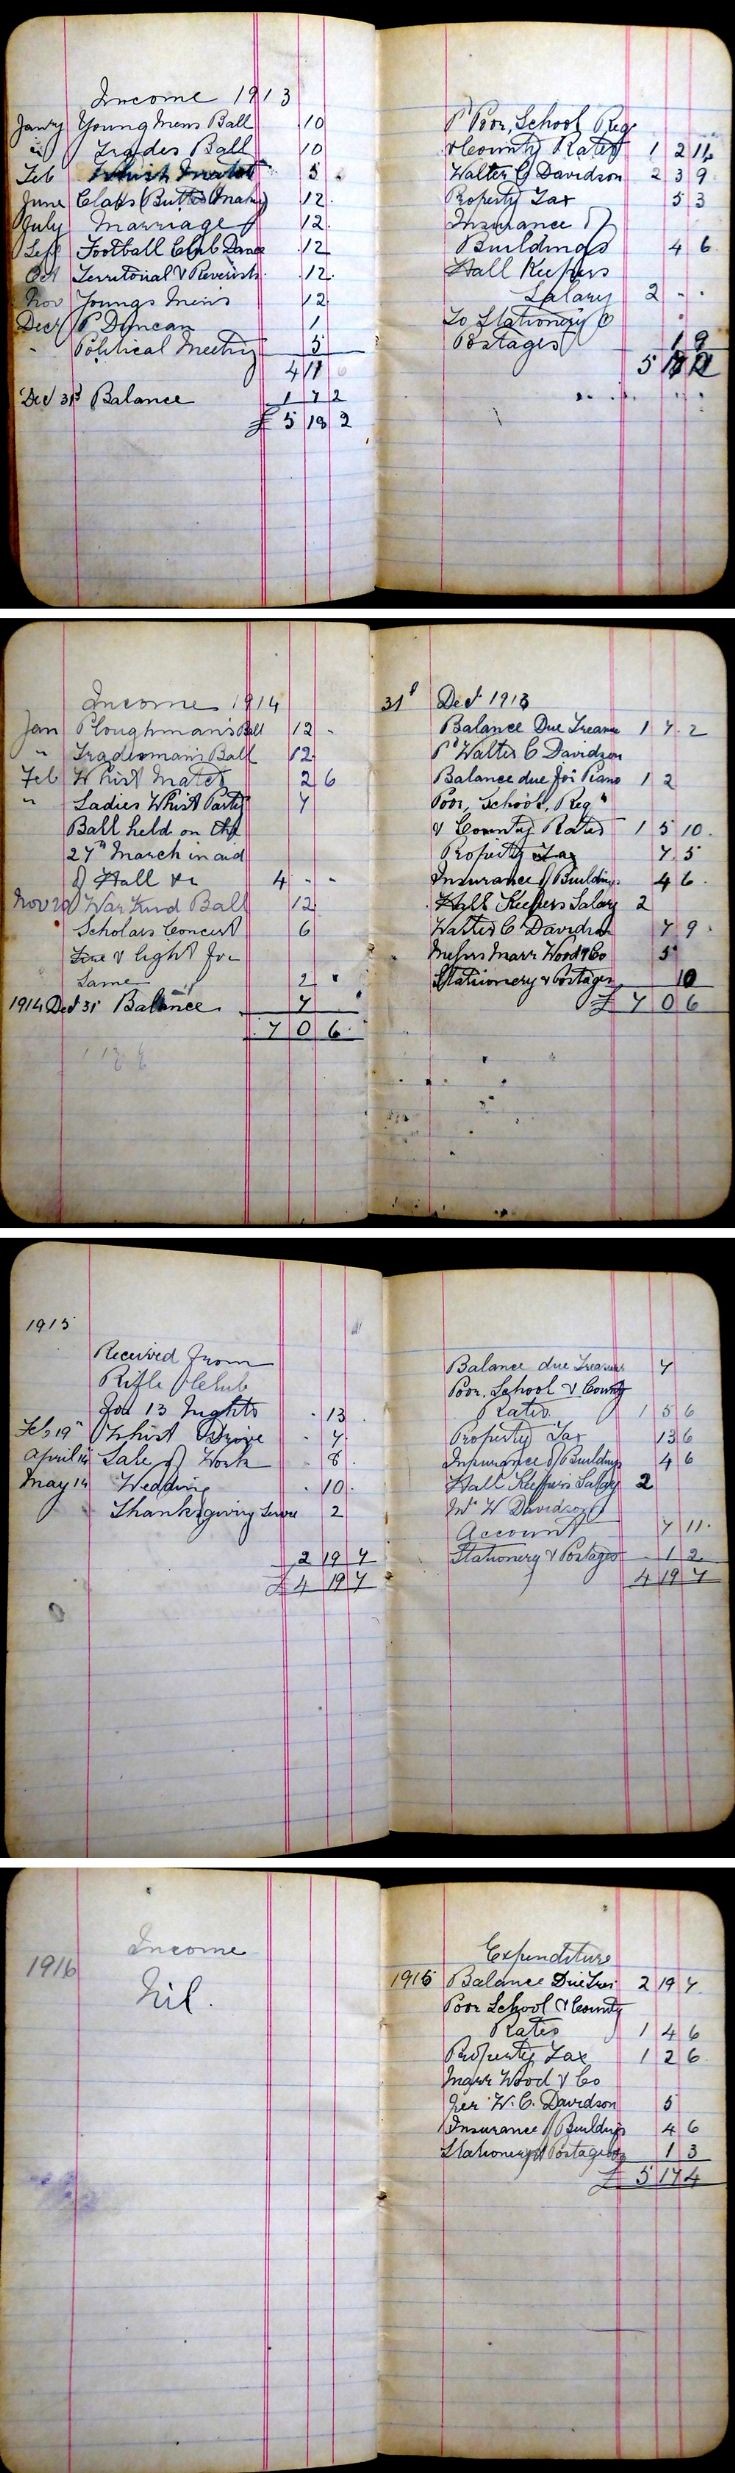 Income 1913
Jan'y Young Mens Ball 10
" Trades Ball 10
Feb Whist Match 5
June Class (Butter Making) 12
July Marriage 12
Sept Football Club Dance 12
Oct Territorial & Reverists 12
Nov Youngs Mens 12
Dec'r P Duncan 1
" Political Meeting 5
4 11
Dec 31st Balance 1 7 2
£ 5 18 2
P Poor, School Reg
& County Rates 1 2 11
Walter C Davidson 2 3 9
Property Tax 5 3
Insurance of
Buildings 4 6
Hall Keepers
Salary 2 - -
To Stationery &
Postages 1 9
5 18 2
Income 1914
Jan Ploughman's Ball 12 -
" Tradesman's Ball 12
Feb Whist Match 2 6
" Ladies Whist Party 7
Ball held on the
27th March in aid
of Hall &c 4 - -
Nov 20 War Fund Ball 12
Scholars Concert 6
Fire & light for
Same 2
1914 Dec 31st Balance 7
7 0 6
31st Dec 1913
Balance Due Treasurer 1 7 2
Pd Walter C Davidson
Balance due for Piano 1 2
Poor, School, Reg"
& County Rates 1 5 10
Property Tax 7 5
Insurance of Buildings 4 6
Hall Keepers Salary 2
Walter C Davidson 7 9
Messrs Marr Wood & Co 5
Stationery & Postages 10
£ 7 0 6
1915
Received from
Rifle Club
for 13 Nights 13
Feb 19th Whist Drove 7
April 14 Sale of Work 8
May 14 Wedding 10
Thanksgiving Service 2
2 19 7
£ 4 19 7
Balance due Treasurer 7
Poor, School & County
Rates 1 5 6
Property Tax 13 6
Insurance of Buildings 4 6
Hall Keepers Salary 2
Mr W Davidson
Account 7 11
Stationery & Postages 1 2
4 19 7
Income
1916
Nil.
Expenditure
1915 Balance Due Tres 2 19 7
Poor School & County
Rates 1 4 6
Property Tax 1 2 6
Marr Wood & Co
per W. C. Davidson 5
Insurance of Buildings 4 6
Stationery & Postages 1 3
£ 5 17 4